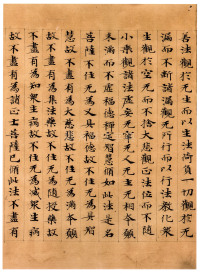 善法觀於无生而以生法荷負一切觀於无
漏而不斷諸漏觀无所行而以行法教化衆
生觀於空无而不捨大悲觀正法位而不隨
小乘觀諸法虛妄无牢无人无主无相本願
未滿而不虛福德禪定智慧脩如此法是名
菩薩不住无為又具福德故不住无為具智
慧故不盡有為大慈悲故不住无為滿本願
故不盡有為集法藥故不住无為隨授藥
故不盡有為知衆生病故不住无為滅衆生病
故不盡有為諸正士菩薩已脩此法不盡有